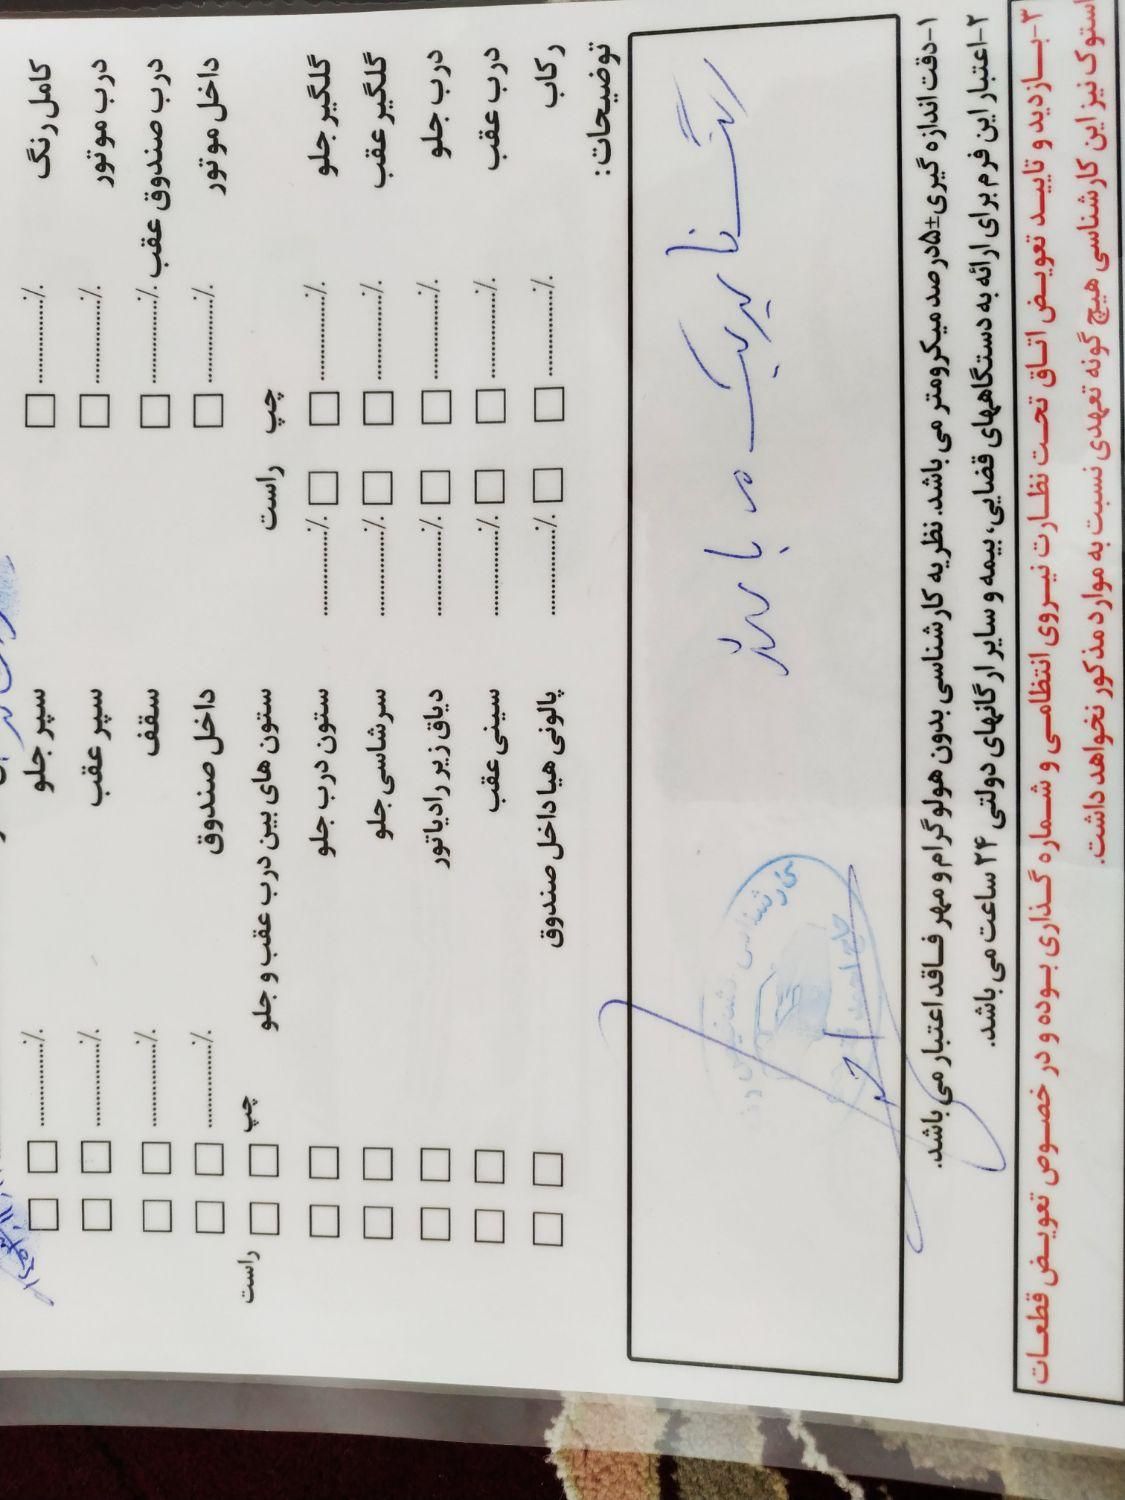 کامل رنگ ...............٪ □ سپر جلو ...............٪ □ □
درب موتور ...............٪ □ سپر عقب ...............٪ □ □
درب صندوق عقب ...............٪ □ سقف ...............٪ □ □
داخل موتور ...............٪ □ داخل صندوق ...............٪ □ □
چپ راست ستون های بین درب عقب و جلو چپ □ □ راست
گلگیر جلو ...............٪ □ □ ...............٪ ستون درب جلو □ □
گلگیر عقب ...............٪ □ □ ...............٪ سرشاسی جلو □ □
درب جلو ...............٪ □ □ ...............٪ دیاق زیر رادیاتور □ □
درب عقب ...............٪ □ □ ...............٪ سینی عقب □ □
رکاب ...............٪ □ □ ...............٪ پالونی هیا داخل صندوق □ □
توضیحات:
۱-دقت اندازه گیری±۵درصد میکرومتر می باشد. نظریه کارشناسی بدون هولوگرام و مهر فاقد اعتبار می باشد.
۲-اعتبار این فرم برای ارائه به دستگاههای قضایی، بیمه و سایر ارگانهای دولتی ۲۴ ساعت می باشد.
۳-بازدید و تایید تعویض اتاق تحت نظارت نیروی انتظامی و شماره گذاری بوده و در خصوص تعویض قطعات
استوک نیز این کارشناسی هیچ گونه تعهدی نسبت به موارد مذکور نخواهد داشت.